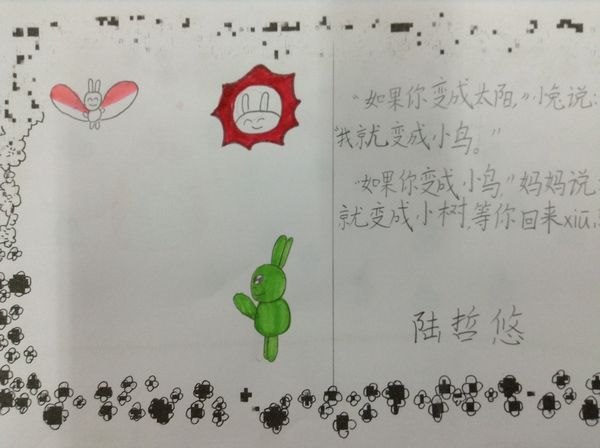 “如果你变成太阳,”小兔说:
“我就变成小鸟。”
“如果你变成小鸟,”妈妈说:
就变成小树,等你回来xiū
陆哲悠